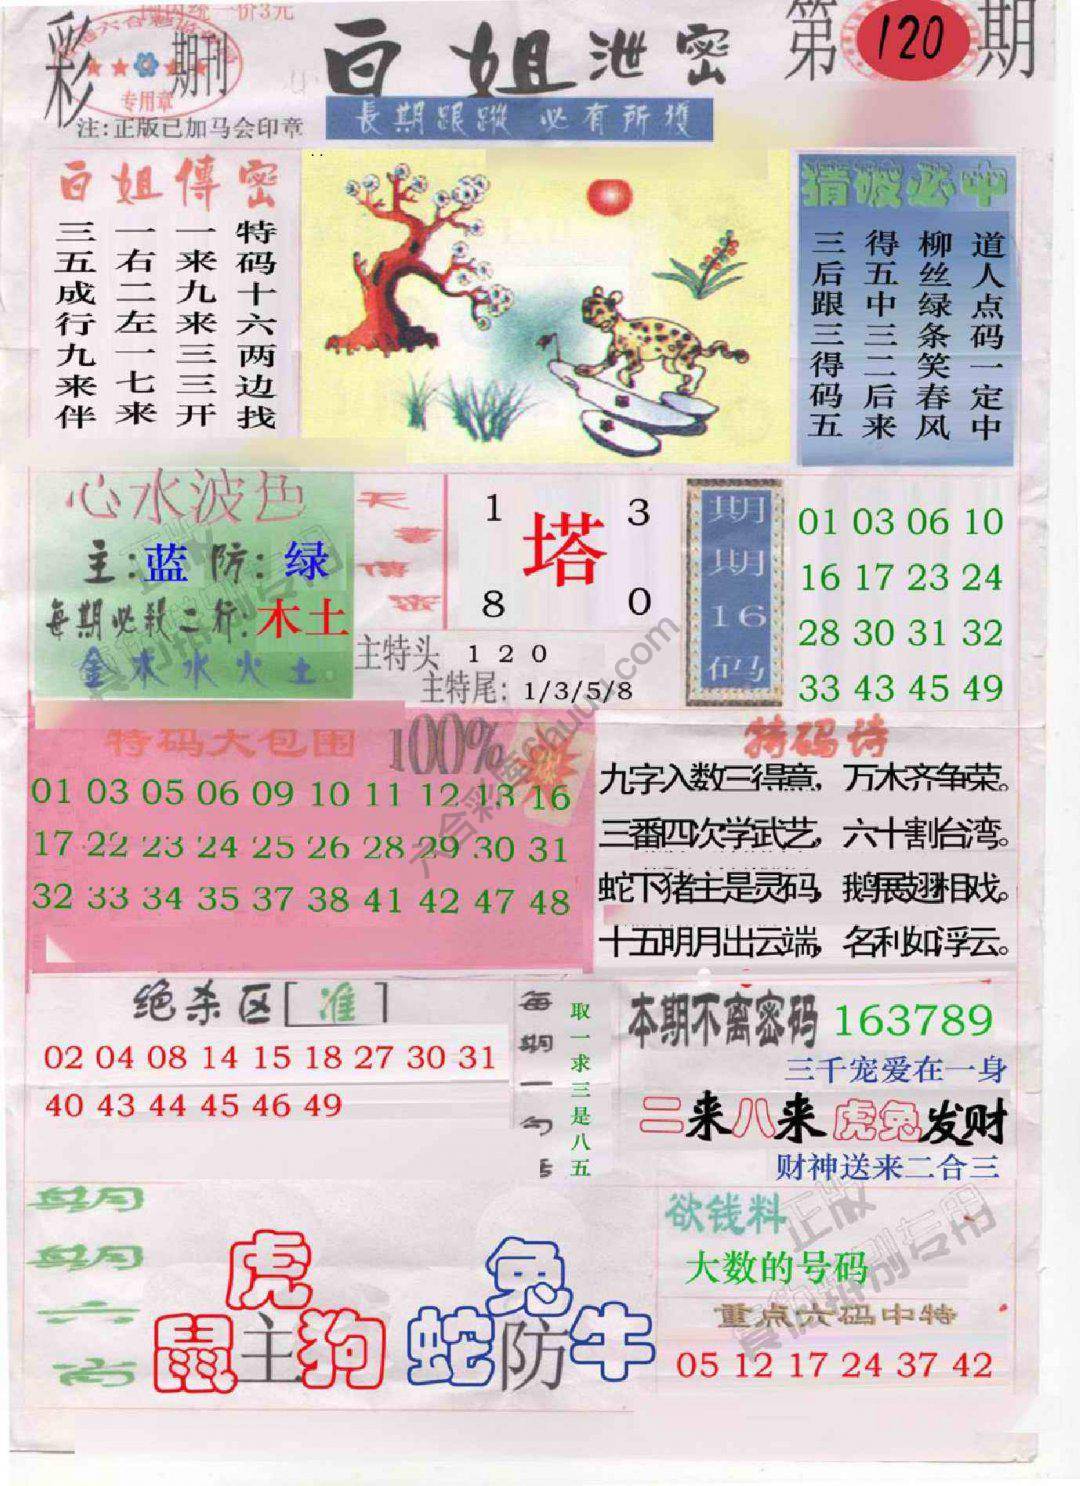 国内统一价3元
彩
期刊
专用章
注:正版已加马会印章
白姐泄密
長期跟蹤 必有所獲
第120期
白姐傳密
特码十六两边找
一来九来三三开
一右二左一七来
三五成行九来伴
猜破必中
道人点码一定中
柳丝绿条笑春风
得五中三二后来
三后跟三得码五
心水波色
主:蓝 防:绿
每期必殺二行:木土
金木水火土
1 3
塔
8 0
主特头 1 2 0
主特尾: 1/3/5/8
期期16码
01 03 06 10
16 17 23 24
28 30 31 32
33 43 45 49
特码大包围 100%
01 03 05 06 09 10 11 12 13 16
17 22 23 24 25 26 28 29 30 31
32 33 34 35 37 38 41 42 47 48
特码诗
九字入数三得意，万木齐争荣。
三番四次学武艺，六十割台湾。
蛇下猪主是灵码，鹅展翅相戏。
十五明月出云端，名利如浮云。
绝杀区[准]
02 04 08 14 15 18 27 30 31
40 43 44 45 46 49
每期一句
取一求三是八五
本期不离密码 163789
三千宠爱在一身
二来八来虎兔发财
财神送来二合三
虎
鼠主狗
兔
蛇防牛
欲钱料
大数的号码
重点六码中特
05 12 17 24 37 42
正版
六合彩库ctuuu.com